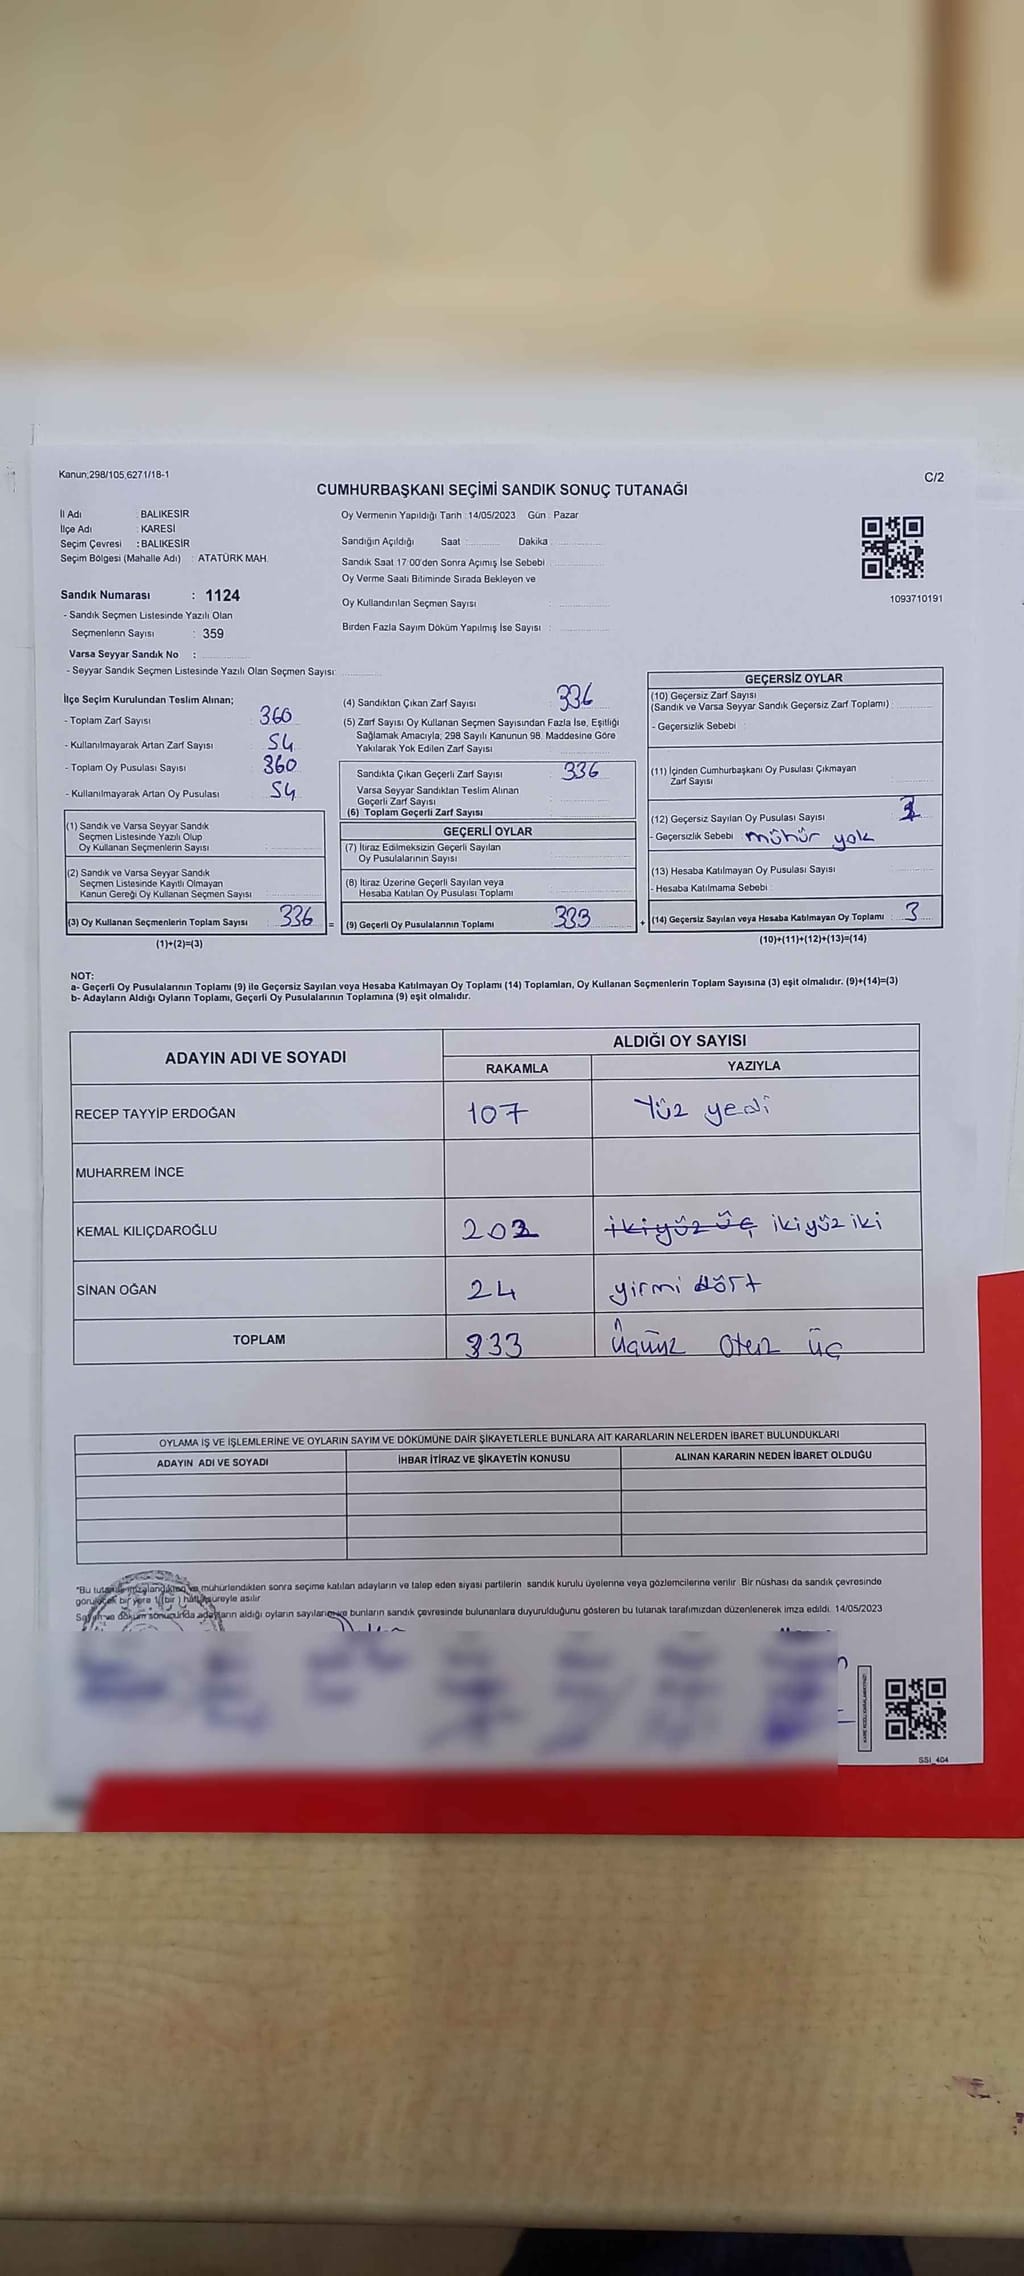 Kanun;298/105,6271/18-1
C/2
CUMHURBAŞKANI SEÇİMİ SANDIK SONUÇ TUTANAĞI
İl Adı : BALIKESİR
İlçe Adı : KARESİ
Seçim Çevresi : BALIKESİR
Seçim Bölgesi (Mahalle Adı) : ATATÜRK MAH.
Sandık Numarası : 1124
- Sandık Seçmen Listesinde Yazılı Olan
Seçmenlerin Sayısı : 359
Varsa Seyyar Sandık No :
- Seyyar Sandık Seçmen Listesinde Yazılı Olan Seçmen Sayısı:
Oy Vermenin Yapıldığı Tarih : 14/05/2023 Gün : Pazar
Sandığın Açıldığı Saat : Dakika :
Sandık Saat 17:00'den Sonra Açımış İse Sebebi :
Oy Verme Saati Bitiminde Sırada Bekleyen ve
Oy Kullandırılan Seçmen Sayısı :
Birden Fazla Sayım Döküm Yapılmış İse Sayısı :
1093710191
İlçe Seçim Kurulundan Teslim Alınan;
- Toplam Zarf Sayısı 360
- Kullanılmayarak Artan Zarf Sayısı 54
- Toplam Oy Pusulası Sayısı 360
- Kullanılmayarak Artan Oy Pusulası 54
(1) Sandık ve Varsa Seyyar Sandık
Seçmen Listesinde Yazılı Olup
Oy Kullanan Seçmenlerin Sayısı
(2) Sandık ve Varsa Seyyar Sandık
Seçmen Listesinde Kayıtlı Olmayan
Kanun Gereği Oy Kullanan Seçmen Sayısı
(3) Oy Kullanan Seçmenlerin Toplam Sayısı : 336 =
(1)+(2)=(3)
(4) Sandıktan Çıkan Zarf Sayısı : 336
(5) Zarf Sayısı Oy Kullanan Seçmen Sayısından Fazla İse, Eşitliği
Sağlamak Amacıyla; 298 Sayılı Kanunun 98. Maddesine Göre
Yakılarak Yok Edilen Zarf Sayısı
Sandıkta Çıkan Geçerli Zarf Sayısı : 336
Varsa Seyyar Sandıktan Teslim Alınan
Geçerli Zarf Sayısı
(6) Toplam Geçerli Zarf Sayısı
GEÇERLİ OYLAR
(7) İtiraz Edilmeksizin Geçerli Sayılan
Oy Pusulalarının Sayısı
(8) İtiraz Üzerine Geçerli Sayılan veya
Hesaba Katılan Oy Pusulası Toplamı
(9) Geçerli Oy Pusulalarının Toplamı : 333 +
GEÇERSİZ OYLAR
(10) Geçersiz Zarf Sayısı
(Sandık ve Varsa Seyyar Sandık Geçersiz Zarf Toplamı)
- Geçersizlik Sebebi :
(11) İçinden Cumhurbaşkanı Oy Pusulası Çıkmayan
Zarf Sayısı
(12) Geçersiz Sayılan Oy Pusulası Sayısı
- Geçersizlik Sebebi : mühür yok
(13) Hesaba Katılmayan Oy Pusulası Sayısı
- Hesaba Katılmama Sebebi :
(14) Geçersiz Sayılan veya Hesaba Katılmayan Oy Toplamı : 3
(10)+(11)+(12)+(13)=(14)
NOT:
a- Geçerli Oy Pusulalarının Toplamı (9) ile Geçersiz Sayılan veya Hesaba Katılmayan Oy Toplamı (14) Toplamları, Oy Kullanan Seçmenlerin Toplam Sayısına (3) eşit olmalıdır. (9)+(14)=(3)
b- Adayların Aldığı Oyların Toplamı, Geçerli Oy Pusulalarının Toplamına (9) eşit olmalıdır.
ADAYIN ADI VE SOYADI
ALDIĞI OY SAYISI
RAKAMLA YAZIYLA
RECEP TAYYİP ERDOĞAN 107 Yüz yedi
MUHARREM İNCE
KEMAL KILIÇDAROĞLU 202 ikiyüz üç ikiyüz iki
SİNAN OĞAN 24 yirmi dört
TOPLAM 333 Üçyüz otuz üç
OYLAMA İŞ VE İŞLEMLERİNE VE OYLARIN SAYIM VE DÖKÜMÜNE DAİR ŞİKAYETLERLE BUNLARA AİT KARARLARIN NELERDEN İBARET BULUNDUKLARI
ADAYIN ADI VE SOYADI İHBAR İTİRAZ VE ŞİKAYETİN KONUSU ALINAN KARARIN NEDEN İBARET OLDUĞU
*Bu tutanak imzalandıktan ve mühürlendikten sonra seçime katılan adayların ve talep eden siyasi partilerin sandık kurulu üyelerine veya gözlemcilerine verilir. Bir nüshası da sandık çevresinde
görülecek bir yere 1 (bir) hafta süreyle asılır.
Sayım ve döküm sonucunda adayların aldığı oyların sayıları ve bunların sandık çevresinde bulunanlara duyurulduğunu gösteren bu tutanak tarafımızdan düzenlenerek imza edildi. 14/05/2023
SSI_404